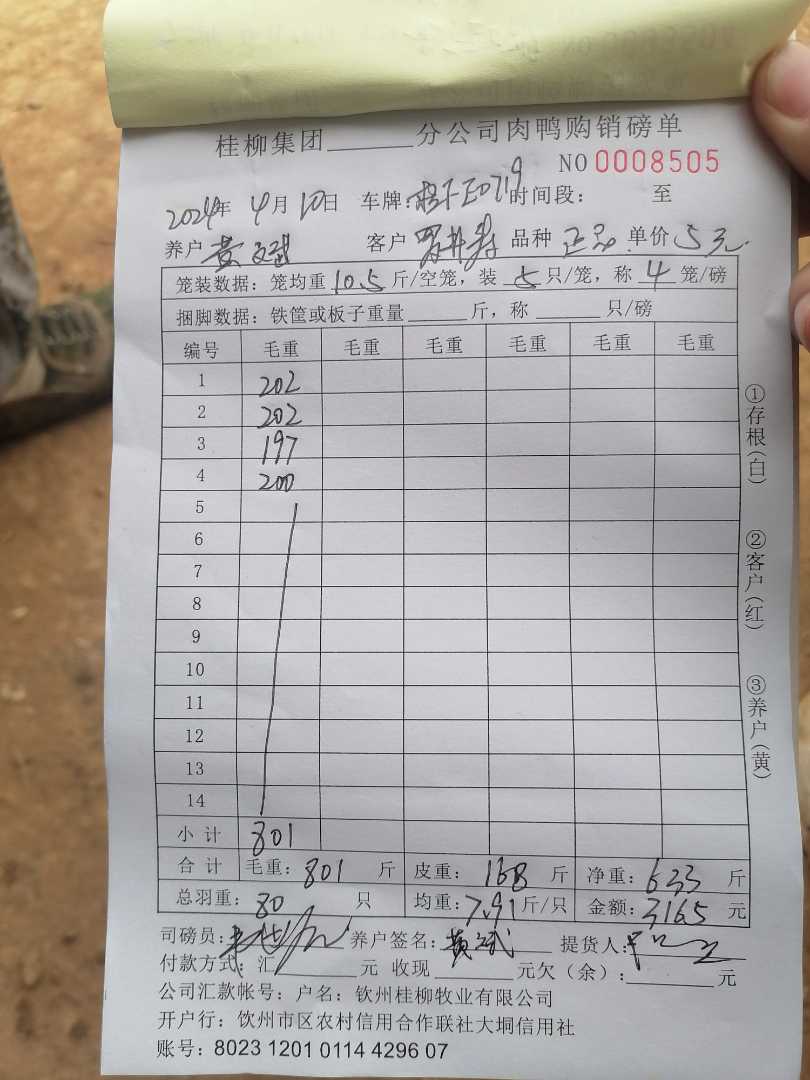 桂柳集团______分公司肉鸭购销磅单
NO 0008505
2024年 4月 10日 车牌: 0719 时间段: 至
养户 黄文斌 客户 品种 正品 单价 5元
笼装数据: 笼均重 10.5 斤/空笼, 装 5 只/笼, 称 4 笼/磅
捆脚数据: 铁筐或板子重量______斤, 称______只/磅
编号 毛重 毛重 毛重 毛重 毛重 毛重
1 202
2 202
3 197
4 200
5
6
7
8
9
10
11
12
13
14
小计 801
合计 毛重: 801 斤 皮重: 168 斤 净重: 633 斤
总羽重: 80 只 均重: 7.91 斤/只 金额: 3165 元
司磅员: 养户签名: 黄文斌 提货人:
付款方式: 汇______元 收现______元欠(余):______元
公司汇款帐号: 户名: 钦州桂柳牧业有限公司
开户行: 钦州市区农村信用合作联社大垌信用社
账号: 8023 1201 0114 4296 07
①存根(白)
②客户(红)
③养户(黄)